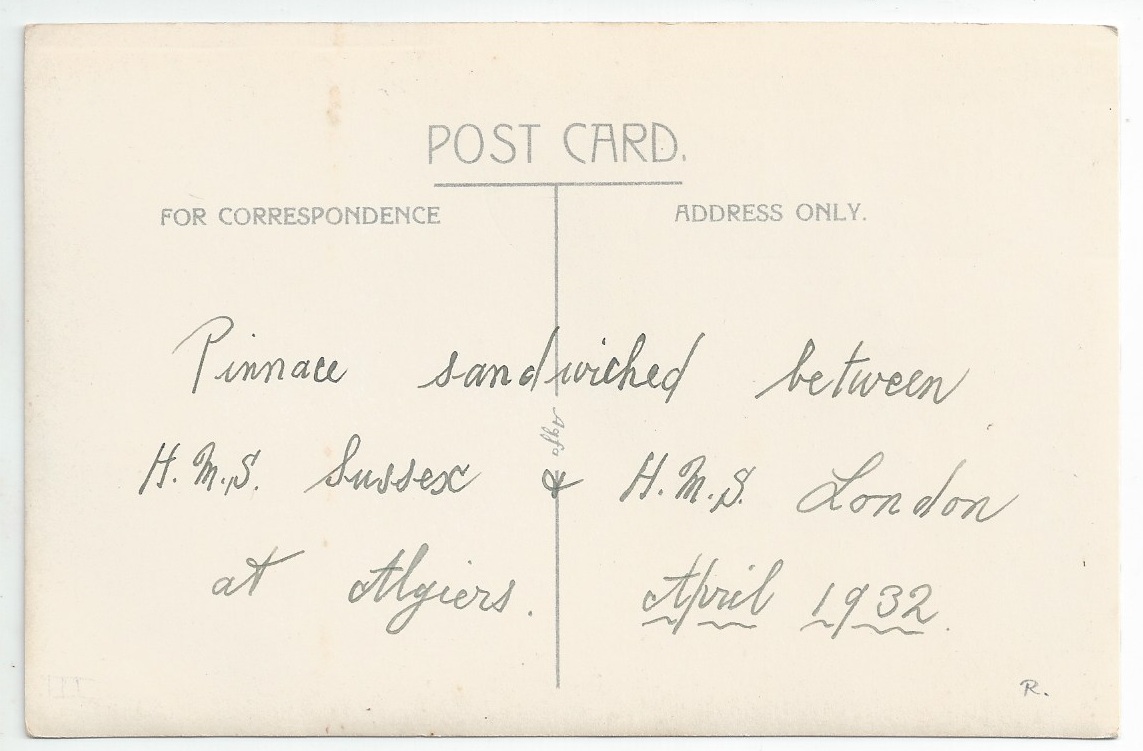 POST CARD.
FOR CORRESPONDENCE
ADDRESS ONLY.
Pinnace sandwiched between
H.M.S. Sussex & H.M.S. London
at Algiers. April 1932.
Agfa
R.